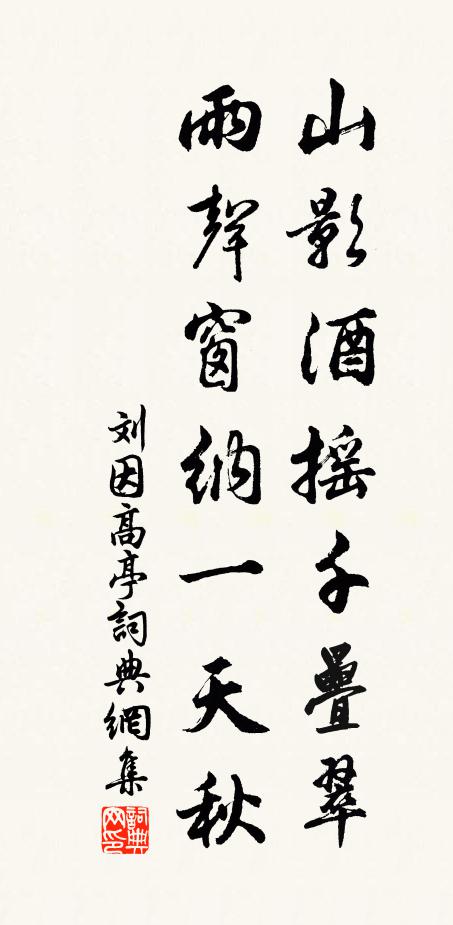 山影酒摇千疊翠
雨聲窗納一天秋
刘因高亭詞典網集
詞典网印